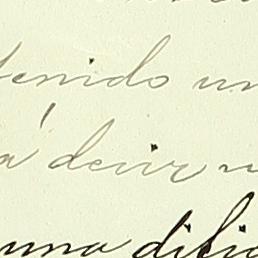 tenido un
á decir
una dilig